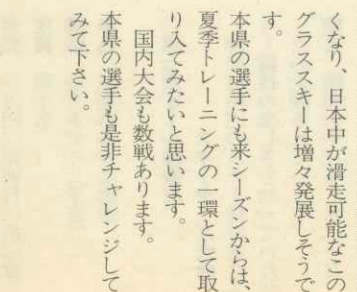 くなり、日本中が滑走可能なこの
グラススキーは増々発展しそうで
す。
本県の選手にも来シーズンからは、
夏季トレーニングの一環として取
り入てみたいと思います。
　国内大会も数戦あります。
本県の選手も是非チャレンジして
みて下さい。